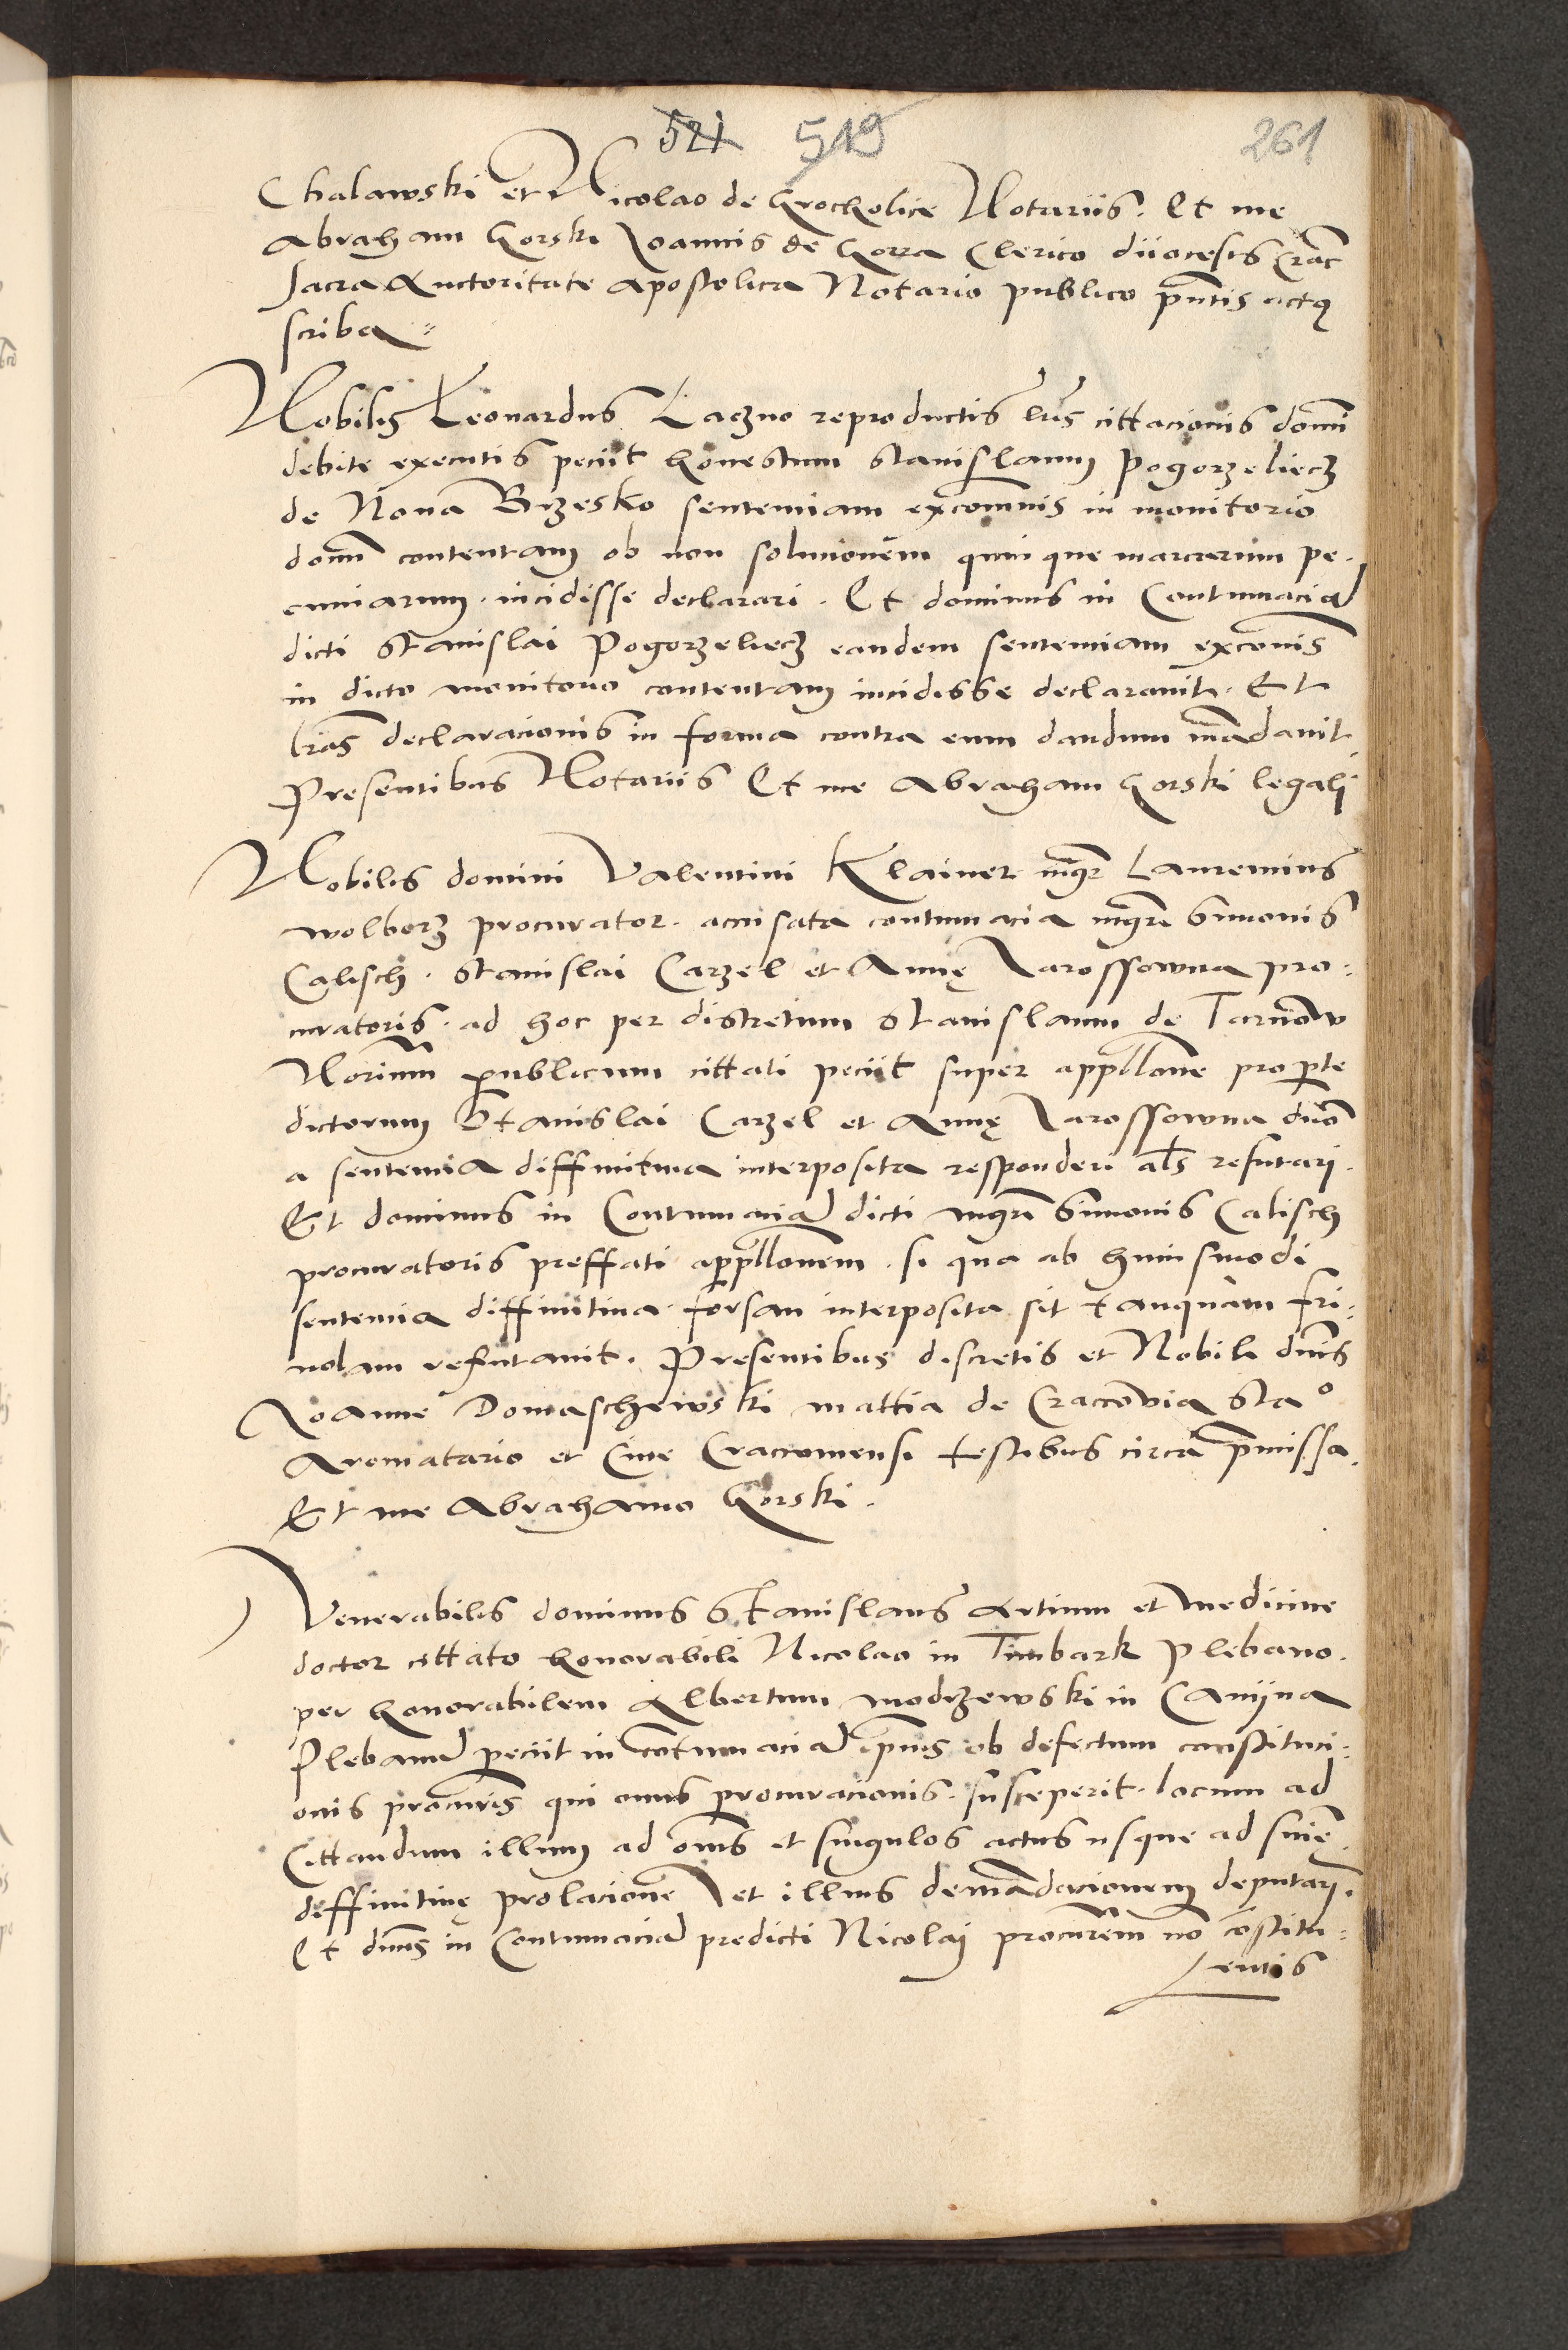 521 519 261
Chalawski et Nicolao de Grocholice Notariis. Et me
Abraham Gorski Joannis de Gorra Clerico diiocesis Crac̄
sacra Auctoritate Apostolica Notario publico pn̄tis actꝫ
scriba
Nobilis Leonardus Laczno reproductis lr̄is cittacionis domi
debite executis peciit honestum Stanislaum Pogorzeliecz
de Nova Brzesko sentenciam excom̄nis in monitorio
domi contentam ob non solucionem quinque marcarum pe-
cuniarum incidisse declarari. Et dominus in Contumaciā
dicti Stanislai Pogorzeliecz eandem sentenciam excōnis
in dicto monitorio contentam incidisse declaravit. Et
lrās declaracionis in forma contra eum dandum mādavit.
Presentibus Notariis Et me Abraham Gorski legalj
Nobilis domini Valentini Klainer mgr̄ Laurencius
wolborz procurator. accusata contumacia mgrī Simonis
Calisch. Stanislai Carzel et Annę Jarossowna pro:
curatoris. ad hoc per discretum Stanislaum de Tarnow
Norium publicum cittati peciit super appllone pro pte
dictorum Stanislai Carzel et Annę Jarossowna duo
a sentencia diffinitiva interposita responderi als refutari.
Et dominus in Contumaciā dicti mgrī Simonis Calisch
procuratoris preffati appllonem. si qua ab huiusmodi
sentencia diffinitiva forsan interposita sit tanquam fri:
volam refutavit. Presentibus discretis et Nobili dnīs
Joanne Domaschewski mattia de Craccovia Sta°
Aromatario et Cive Craccoviensi testibus circa pmissa.
Et me Abrahamo Gorski.
Venerabilis dominus Stanislaus Artium et medicine
doctor cittato honorabili Nicolao in Timbark Plebano.
per honorabilem Albertum modrzewski in Canyna
Plebanū peciit in contumaciā ipius ob defectum constituci:
onis procuris qui onus procuracionis. susceperit. locum ad
Cittandum illum ad oms et singulos actus usque ad snię
deffinitivę prolacione et illius demādacionem deputarj.
Et dnus in Contumaciā predicti Nicolaj procurem nō cōstitu:
entis